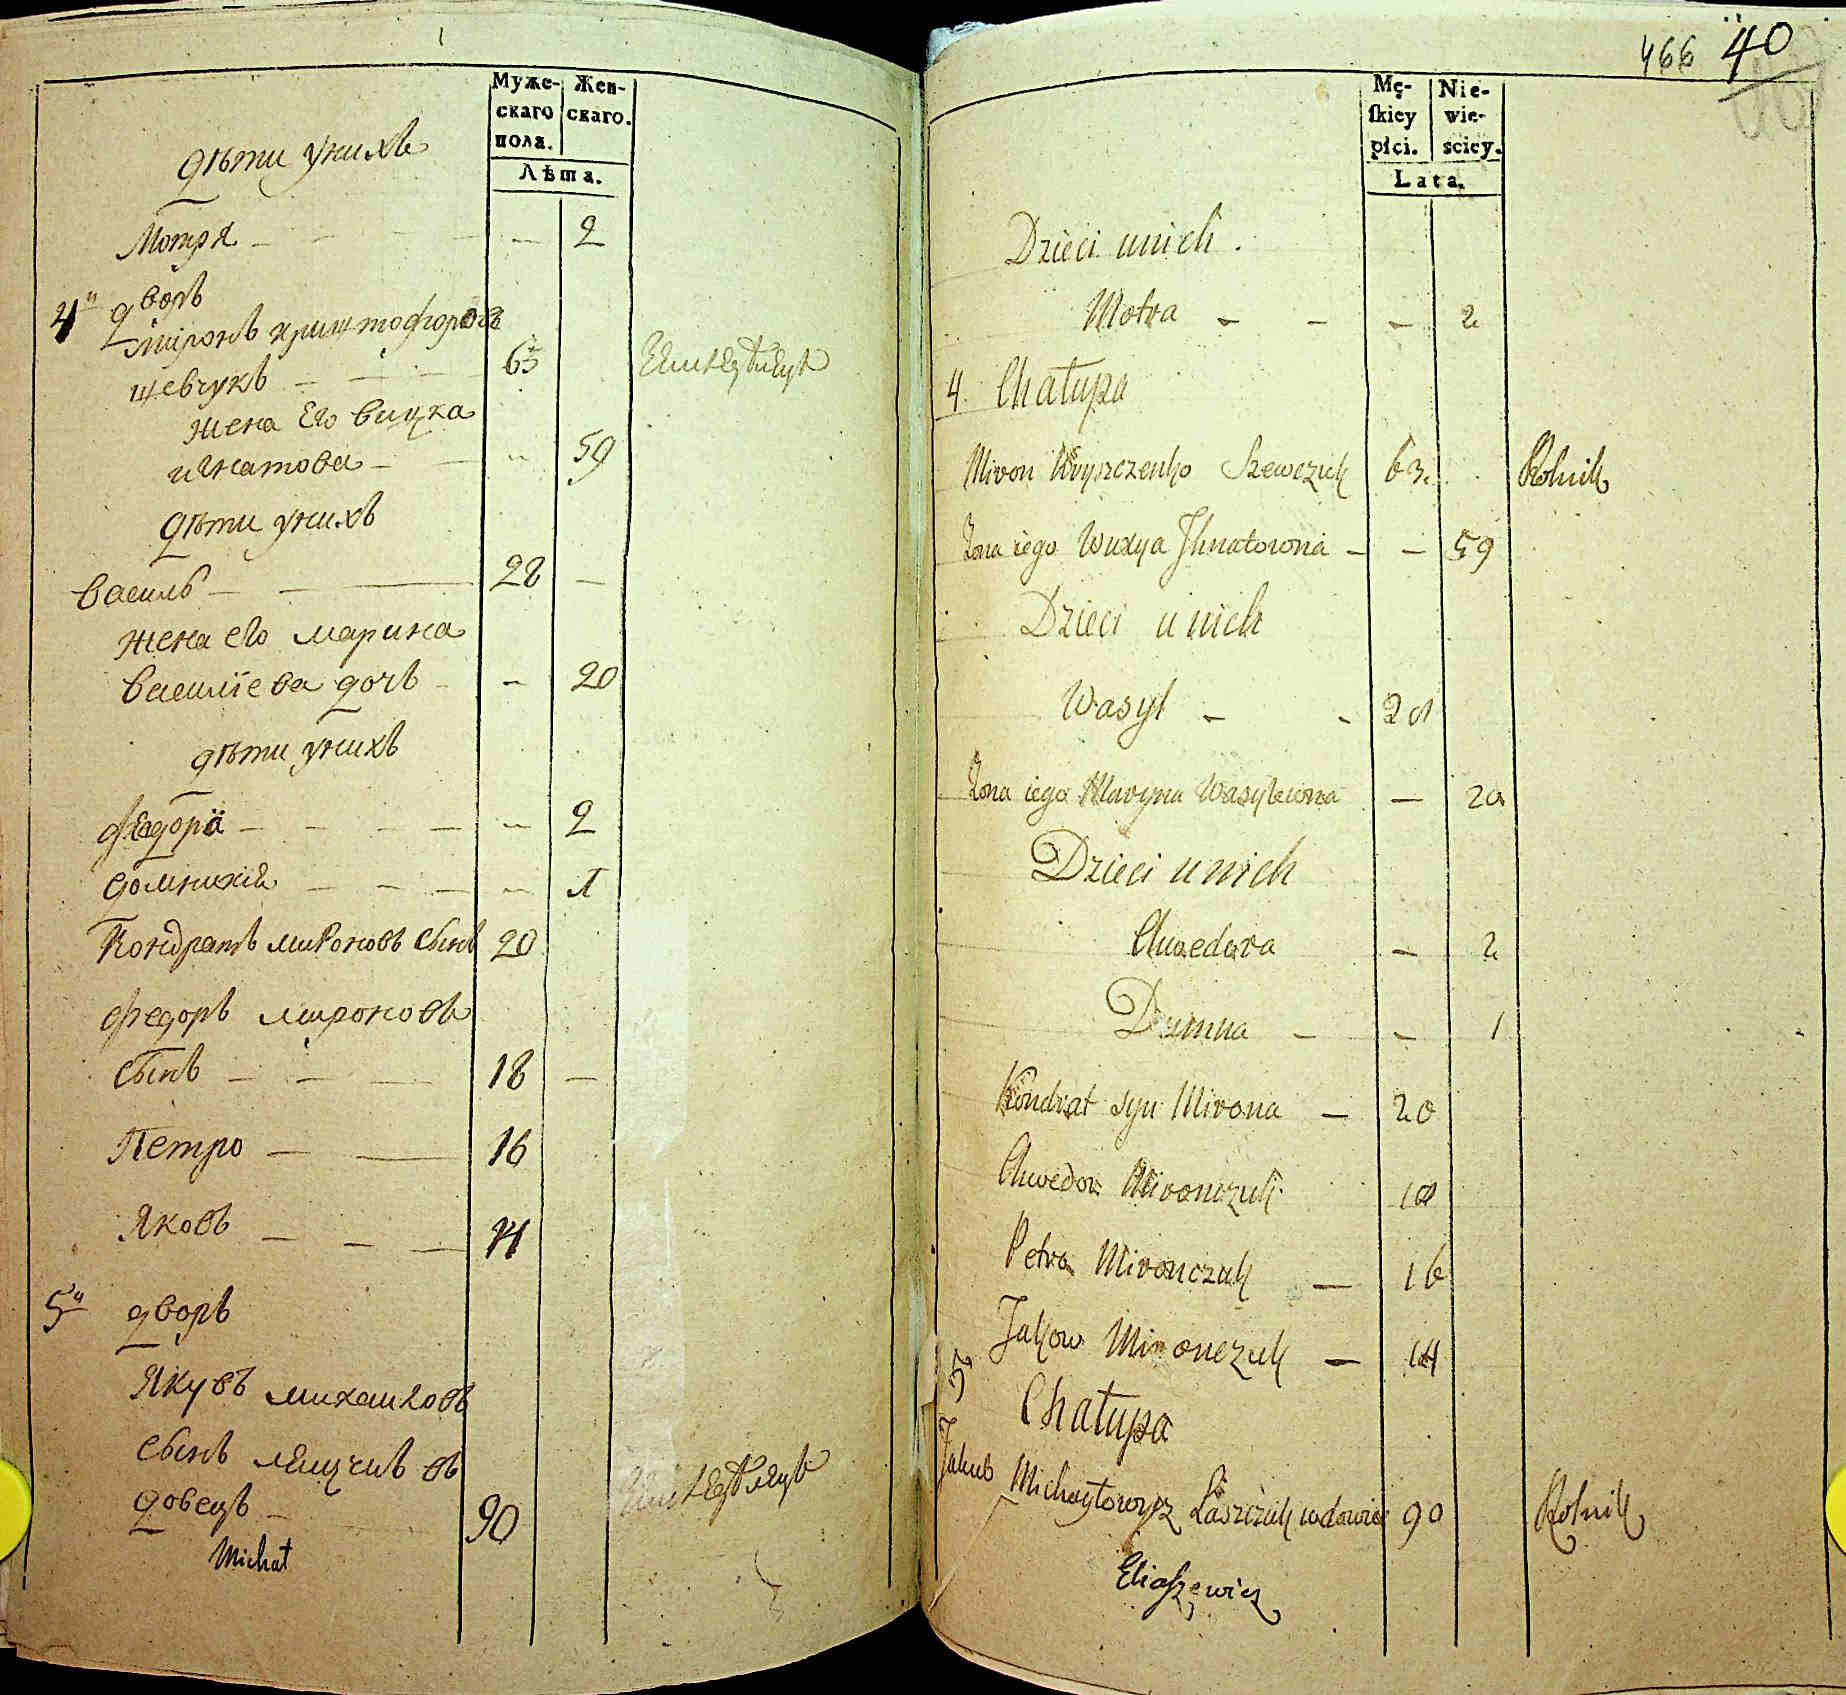 Муже-
скаго
пола.
Жен-
скаго.
Лѣта.
дѣти унихъ
Мотря — — — — — 2
4й дворъ
Миронъ Криштофоровъ
шевчукъ — — — 63
жена Его Вицка
игнатова — — — 59
дѣти унихъ
Василь — — 28 —
жена его марина
Василїева дочь — — 20
дѣти унихъ
Федора — — — — — 2
— — — — 1
Кондратъ мироновъ сынъ 20
Федоръ мироновъ
сынъ — — — 18 —
Петро — — 16
Яковъ — — — 14
5й дворъ
Якувъ михаиловъ
сынъ въ
довецъ — 90
Michał
466 40
Mę-
ſkiey
płci.
Nie-
wie-
sciey.
Lata.
Dzieci unich.
Motra — — — 2
4 Chałupa
Miron Kryszczenko Szewczuk 63. Rolnik
Żona iego Wuxya Jhnatowna — — 59
Dzieci u nich
Wasyl — — 28
Żona iego Maryna Wasylewna — 20
Dzieci u nich
Chwedora — 2
Dumna — — 1
Kondrat syn Mirona — 20
Chwedor Mironczuk 18
Petro Mironczuk — 16
Jakow Mironczuk — 14
5
Chałupa
Jakub Michayłowycz Łaszczuk wdowiec 90 Rolnik
Eliaszewicz